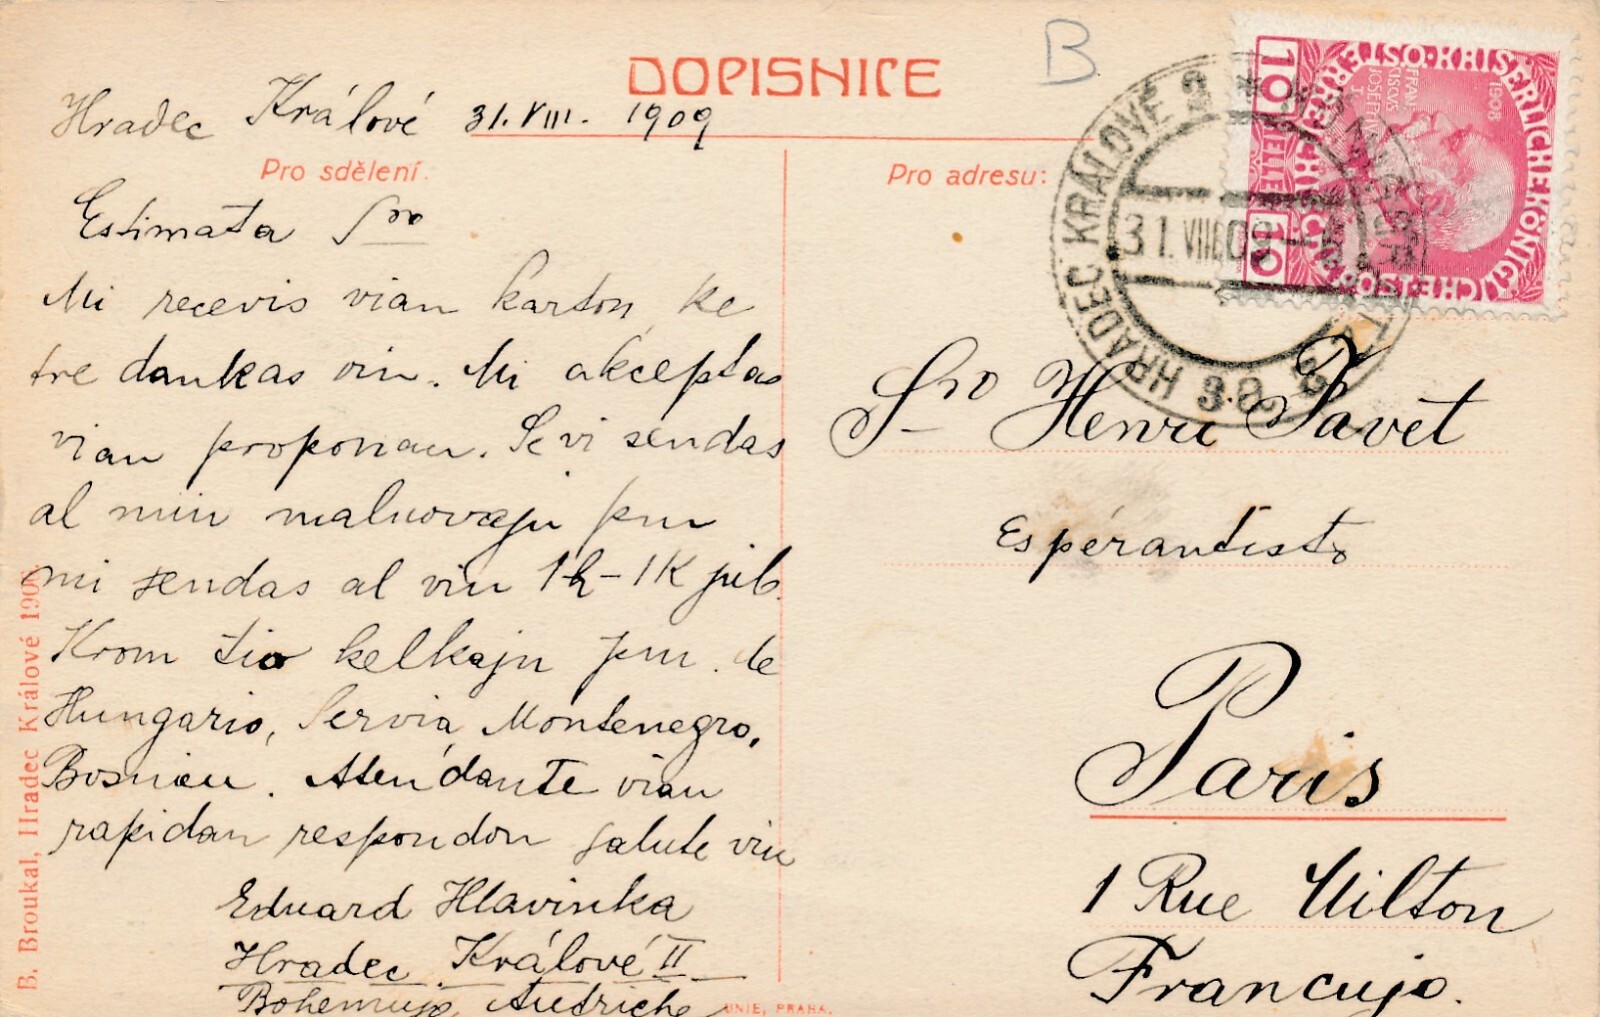 DOPISNICE
B
Hradec Králové 31. VIII. 1909
Pro sdělení.
Estimata Sro
Mi recevis vian karton, ke
tre dankas vin. Mi akceptas
vian proponon. Se vi sendas
al min malnovajn pm
mi sendas al vin 1h-1K jub.
Krom tio kelkajn pm. de
Hungario, Servia, Montenegro,
Bosnien. Atendante vian
rapidan respondon salute vin
Eduard Hlavinka
Hradec Králové II
Bohemujo, Autriche
Pro adresu:
HRADEC KRÁLOVÉ 2
31.VIII.09
1908
10 HELLER 10
Sro Henri Pavet
Espérantisto
Paris
1 Rue Milton
Francujo.
B. Broukal, Hradec Králové
UNIE, PRAHA.